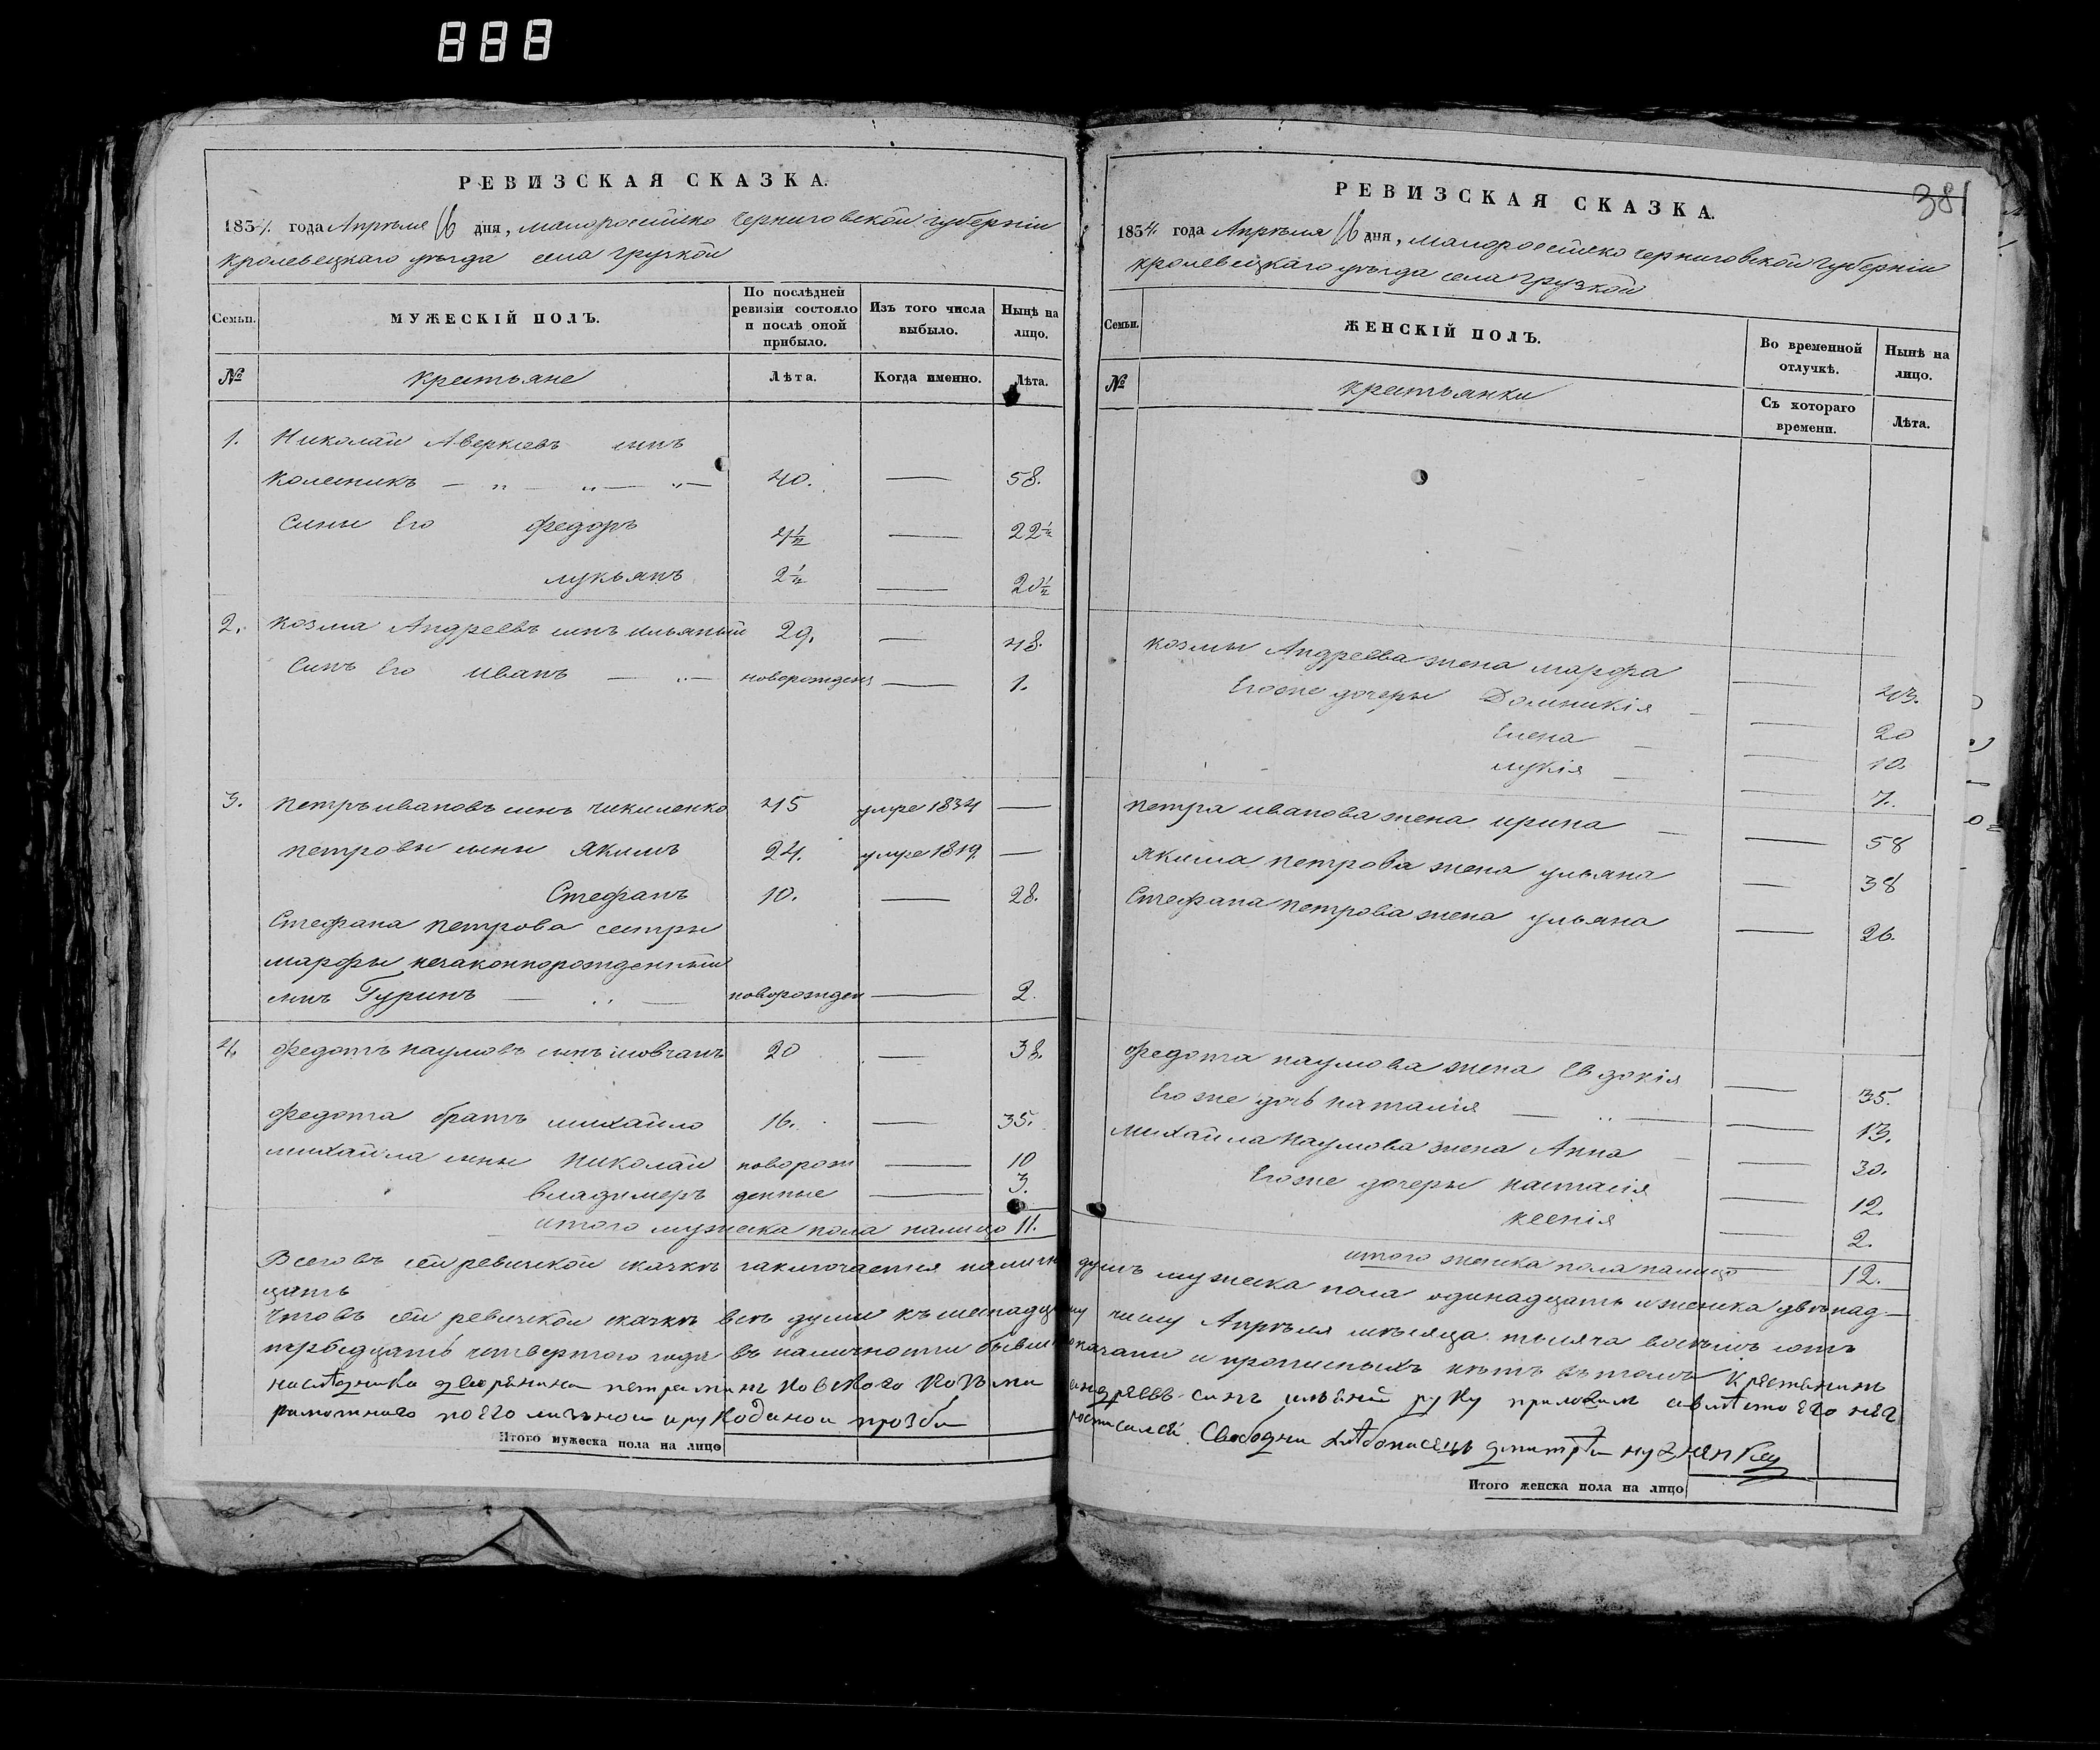 888
РЕВИЗСКАЯ СКАЗКА.
1834. года Апреля 16 дня, малороссийско Черниговской губернии
кролевецкаго уезда села грузкой
Семьи.
МУЖЕСКІЙ ПОЛЪ.
По послѣдней ревизіи состояло и послѣ оной прибыло.
Изъ того числа выбыло.
Нынѣ на лицо.
№ крестьяне Лѣта. Когда именно. Лѣта.
1. Николай Аверкиевъ сынъ
колесникъ — „ — „ — „ — 40. — 58.
Сыны Его федоръ 4½ — 22½
лукьянъ 2½ — 20½
2. козма Андреевъ сынъ ильяный 29. — 48.
Сынъ Его иванъ — „ — новорожден — 1.
3. петръ ивановъ сынъ чикиленко 45 умре 1834 —
петровы сыны Якимъ 24. умре 1819. —
Стефанъ 10. — 28.
Стефана петрова сестры
марфы незаконнорожденный
сынъ Гуринъ — „ — новорожден — 2.
4. федотъ наумовъ сынъ мовчанъ 20 — 38.
федота братъ михайло 16. — 35.
михайла сыны николай новорож — 10
владимеръ денные — 3.
итого мужеска пола налицо 11.
Всего въ сей ревизской скаске заключается налич
цать
Что въ сей ревизской скаске все души къ шестнадца
тридцать четвертого года въ наличности бывши
наследника дворянина петра
рамотнаго по Его личьной и рукоданой прозби
Итого мужеска пола на лицо
381
РЕВИЗСКАЯ СКАЗКА.
1834. года Апреля 16 дня, малороссийско черниговской губернии
кролевецкаго уезда села грузкой
Семьи.
ЖЕНСКІЙ ПОЛЪ.
Во временной отлучкѣ.
Нынѣ на лицо.
№ крестьянки Съ котораго времени. Лѣта.
козмы Андреева жена марфа — 43.
Его же дочеры Домникія — 20
Елена — 10.
лукія — 7.
петра иванова жена ирина — 58
якима петрова жена ульяна — 38
Стефана петрова жена ульяна — 26.
федота наумова жена Евдокія — 35.
Его же дочь наталія — „ — 13.
михайла наумова жена Анна — 30.
Его же дочеры наталія — 12.
ксенія — 2.
итого женска пола налицо 12.
душъ мужеска пола одинадцать и женска двенад—
му числу Апреля месяца тысяча восемь сотъ
показани и прописныхъ нетъ въ томъ крестьянинъ
андреевъ синъ ильяний руку приложилъ а вместо его нег
росписалсе Свободни хлѣбопасецъ дмитри
Итого женска пола на лицо